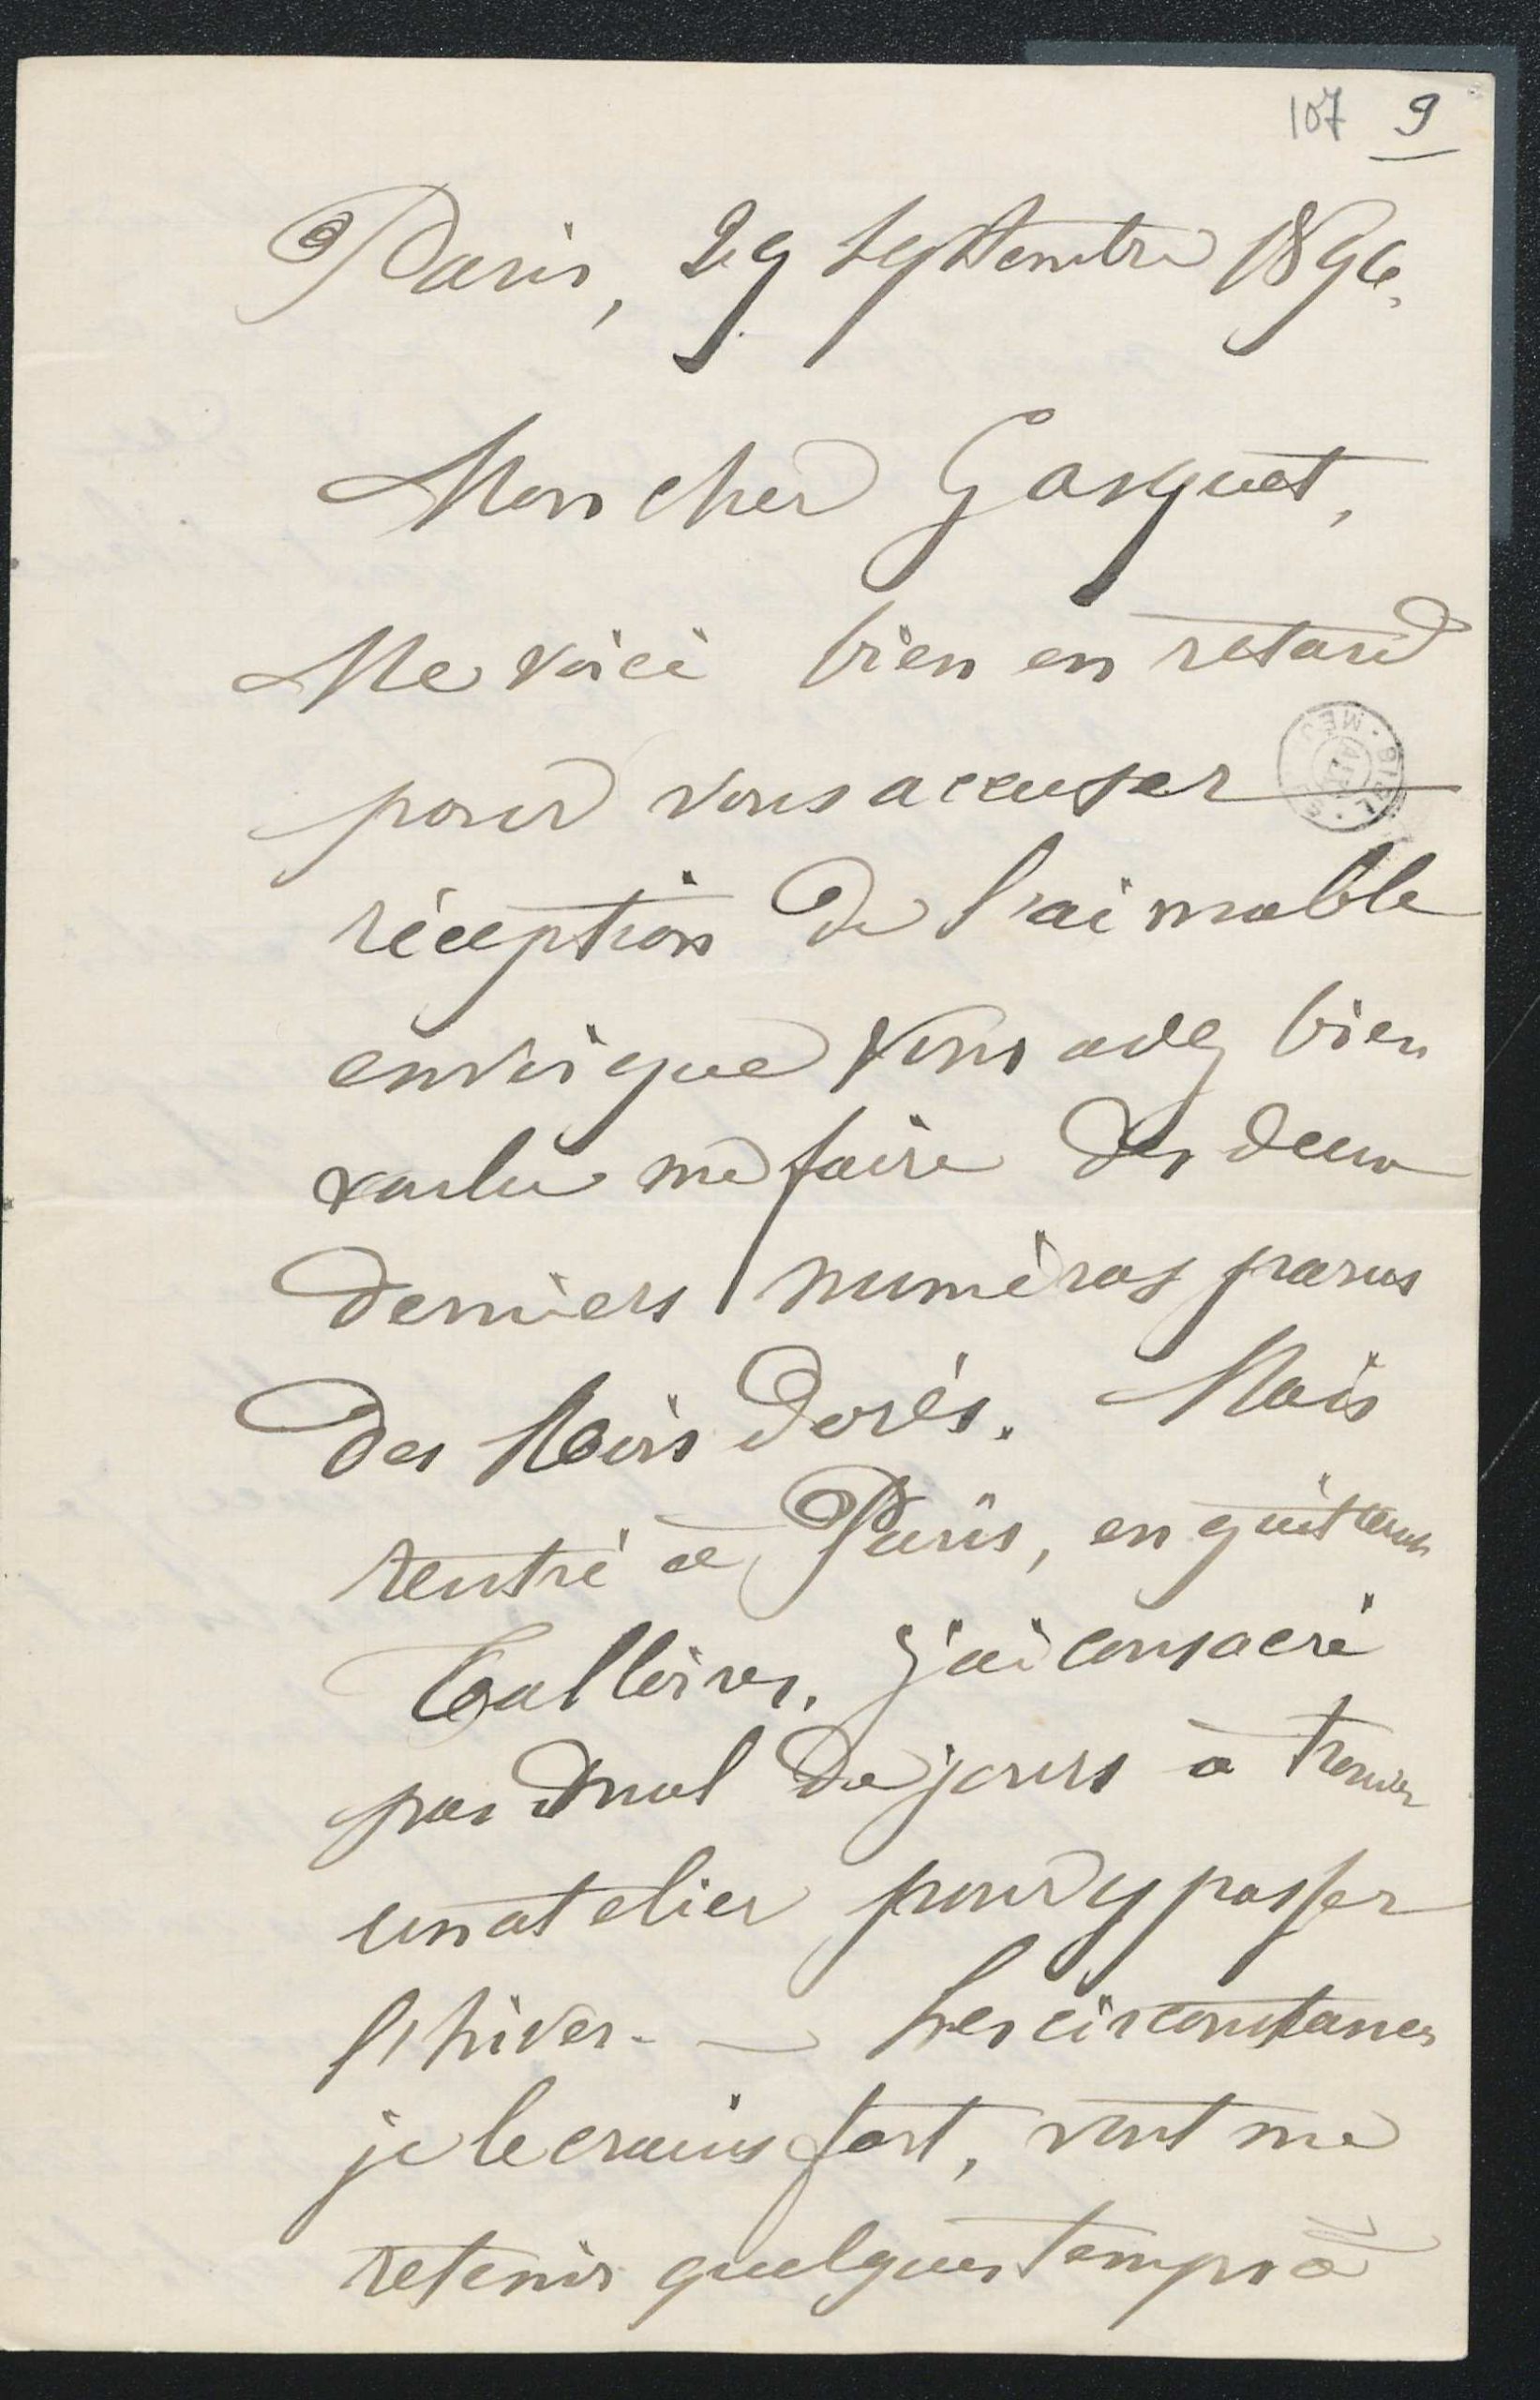 107 9
Paris, 29 septembre 1896.
Mon cher Gasquet,
Me voici bien en retard
pour vous accuser
réception de l'aimable
envoi que vous avez bien
voulu me faire des deux
derniers numéros parus
des Mois Dorés. Mais
rentré à Paris, en quittant
Talloires, j'ai consacré
pas mal de jours à trouver
un atelier pour y passer
l'hiver. — Les circonstances
je le crains fort, vont me
retenir quelques temps à